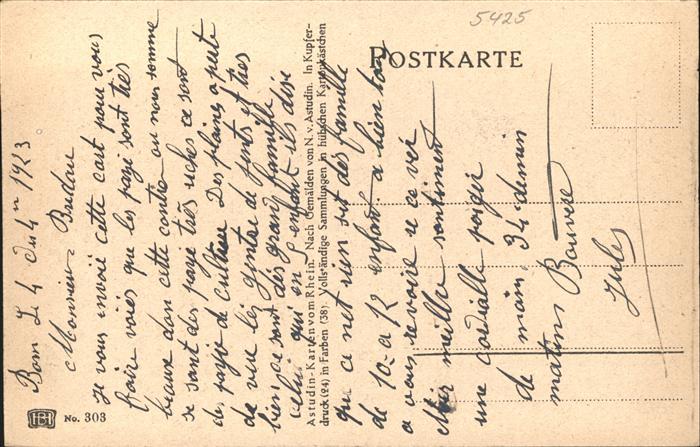 5425
POSTKARTE
Bom L 4 du 4 1923
Monsieur Baudou
je vous envoié cette cart pour vous
faire voiés que les payé sont très
beaux don cette contré ou nous somme
se sont des payé très riches ce sont
des payé de culture Des plaines a perte
de vue les gentse de fents et très
bien ce sont dés grand famille
celui qui en 5 enfant ils dise
que ce net rien set dés famille
de 10 a 12 enfant a bien tous
a vous revoire re ce voir
Mes meille sentiment
une cordialle poigér
de main 34 demain
matin Bauvére
Jules
Astudin-Karten vom Rhein. Nach Gemälden von N. v. Astudin. In Kupfer-
druck (24) in Farben (38). Vollständige Sammlungen in hübschen Kartenkästchen
HB No. 303